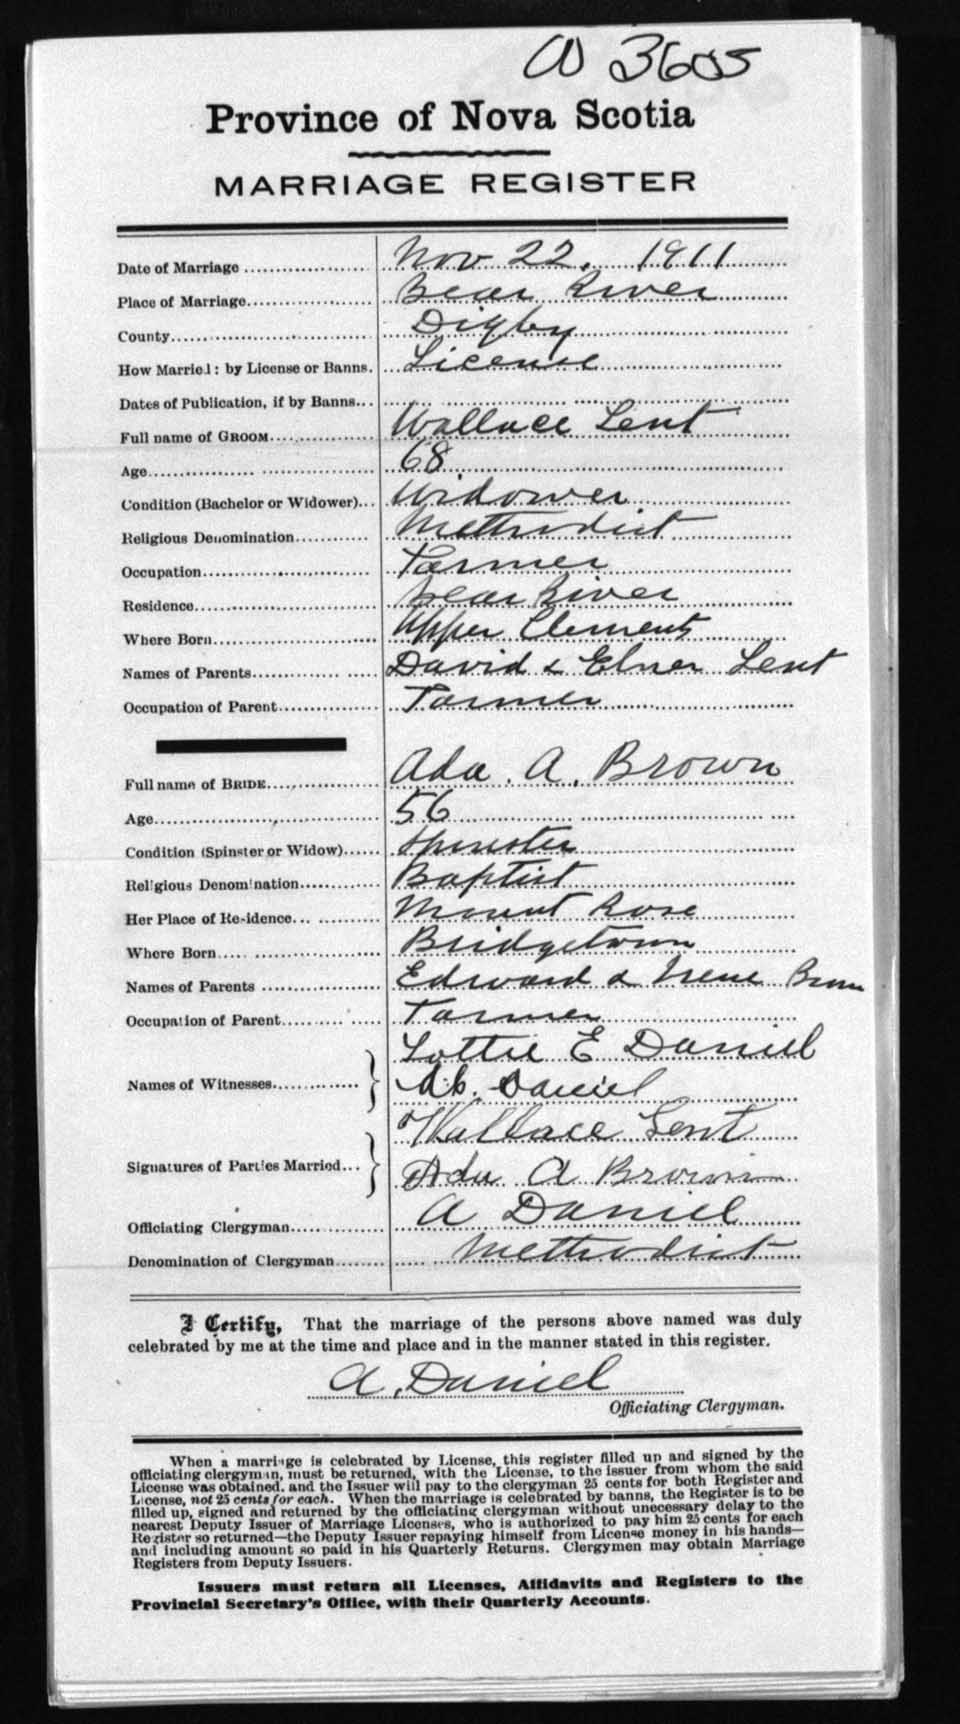 3605
Province of Nova Scotia
MARRIAGE REGISTER
Date of Marriage Nov 22, 1911
Place of Marriage Bear River
County Digby
How Married: by License or Banns. License
Dates of Publication, if by Banns
Full name of GROOM Wallace Lent
Age 68
Condition (Bachelor or Widower) Widower
Religious Denomination Methodist
Occupation Farmer
Residence Bear River
Where Born Upper Clements
Names of Parents David & Elner Lent
Occupation of Parent Farmer
Full name of BRIDE Ada. A. Brown
Age 56
Condition (Spinster or Widow) Spinster
Religious Denomination Baptist
Her Place of Residence Mount Rose
Where Born Bridgetown
Names of Parents Edward & Irene Brown
Occupation of Parent Farmer
Lottie E Daniel
Names of Witnesses
Daniel
Wallace Lent
Signatures of Parties Married
Ada A Brown
Officiating Clergyman A Daniel
Denomination of Clergyman Methodist
I Certify, That the marriage of the persons above named was duly
celebrated by me at the time and place and in the manner stated in this register.
A. Daniel
Officiating Clergyman.
When a marriage is celebrated by License, this register filled up and signed by the
officiating clergyman, must be returned, with the License, to the issuer from whom the said
License was obtained, and the Issuer will pay to the clergyman 25 cents for both Register and
License, not 25 cents for each. When the marriage is celebrated by banns, the Register is to be
filled up, signed and returned by the officiating clergyman without unecessary delay to the
nearest Deputy Issuer of Marriage Licenses, who is authorized to pay him 25 cents for each
Register so returned—the Deputy Issuer repaying himself from License money in his hands—
and including amount so paid in his Quarterly Returns. Clergymen may obtain Marriage
Registers from Deputy Issuers.
Issuers must return all Licenses, Affidavits and Registers to the
Provincial Secretary's Office, with their Quarterly Accounts.